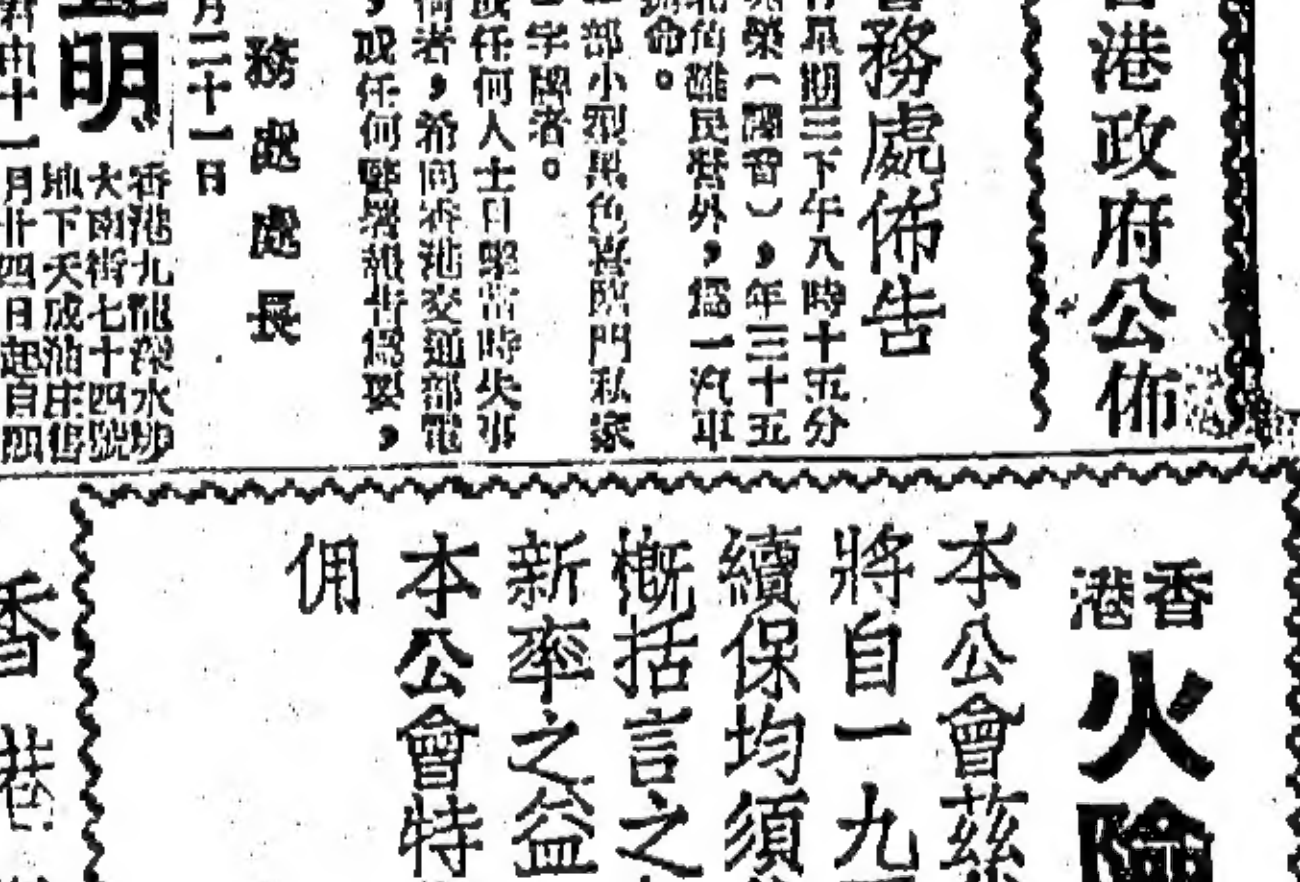 香港政府公佈
務處佈告
星期三下午八時十五分
榮（譯音），年三十五
角難民營外，爲一汽車
命。
部小型黑色舊險門私家
字牌者。
或任何人士目擊當時失事
何者，希向香港交通部電
，或任何警署報告爲要，
務處處長
月二十一日
明
香港九龍深水埗
大南街七十四號
地下天成油庄
月廿四日起自
香港
火險
本公會茲
將自一九
續保均須
概括言之
新率之益
本公會特
佣
香港